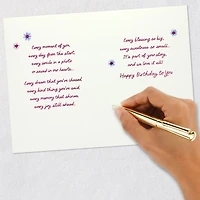 Every moment of you,
every day from the start,
every smile in a photo
is saved in my heart...
Every dream that you've chased
every kind thing you've said
every memory that shines
every joy still ahead.
Every blessing so big,
every sweetness so small...
It's part of your story,
and we love it all!
Happy Birthday to You